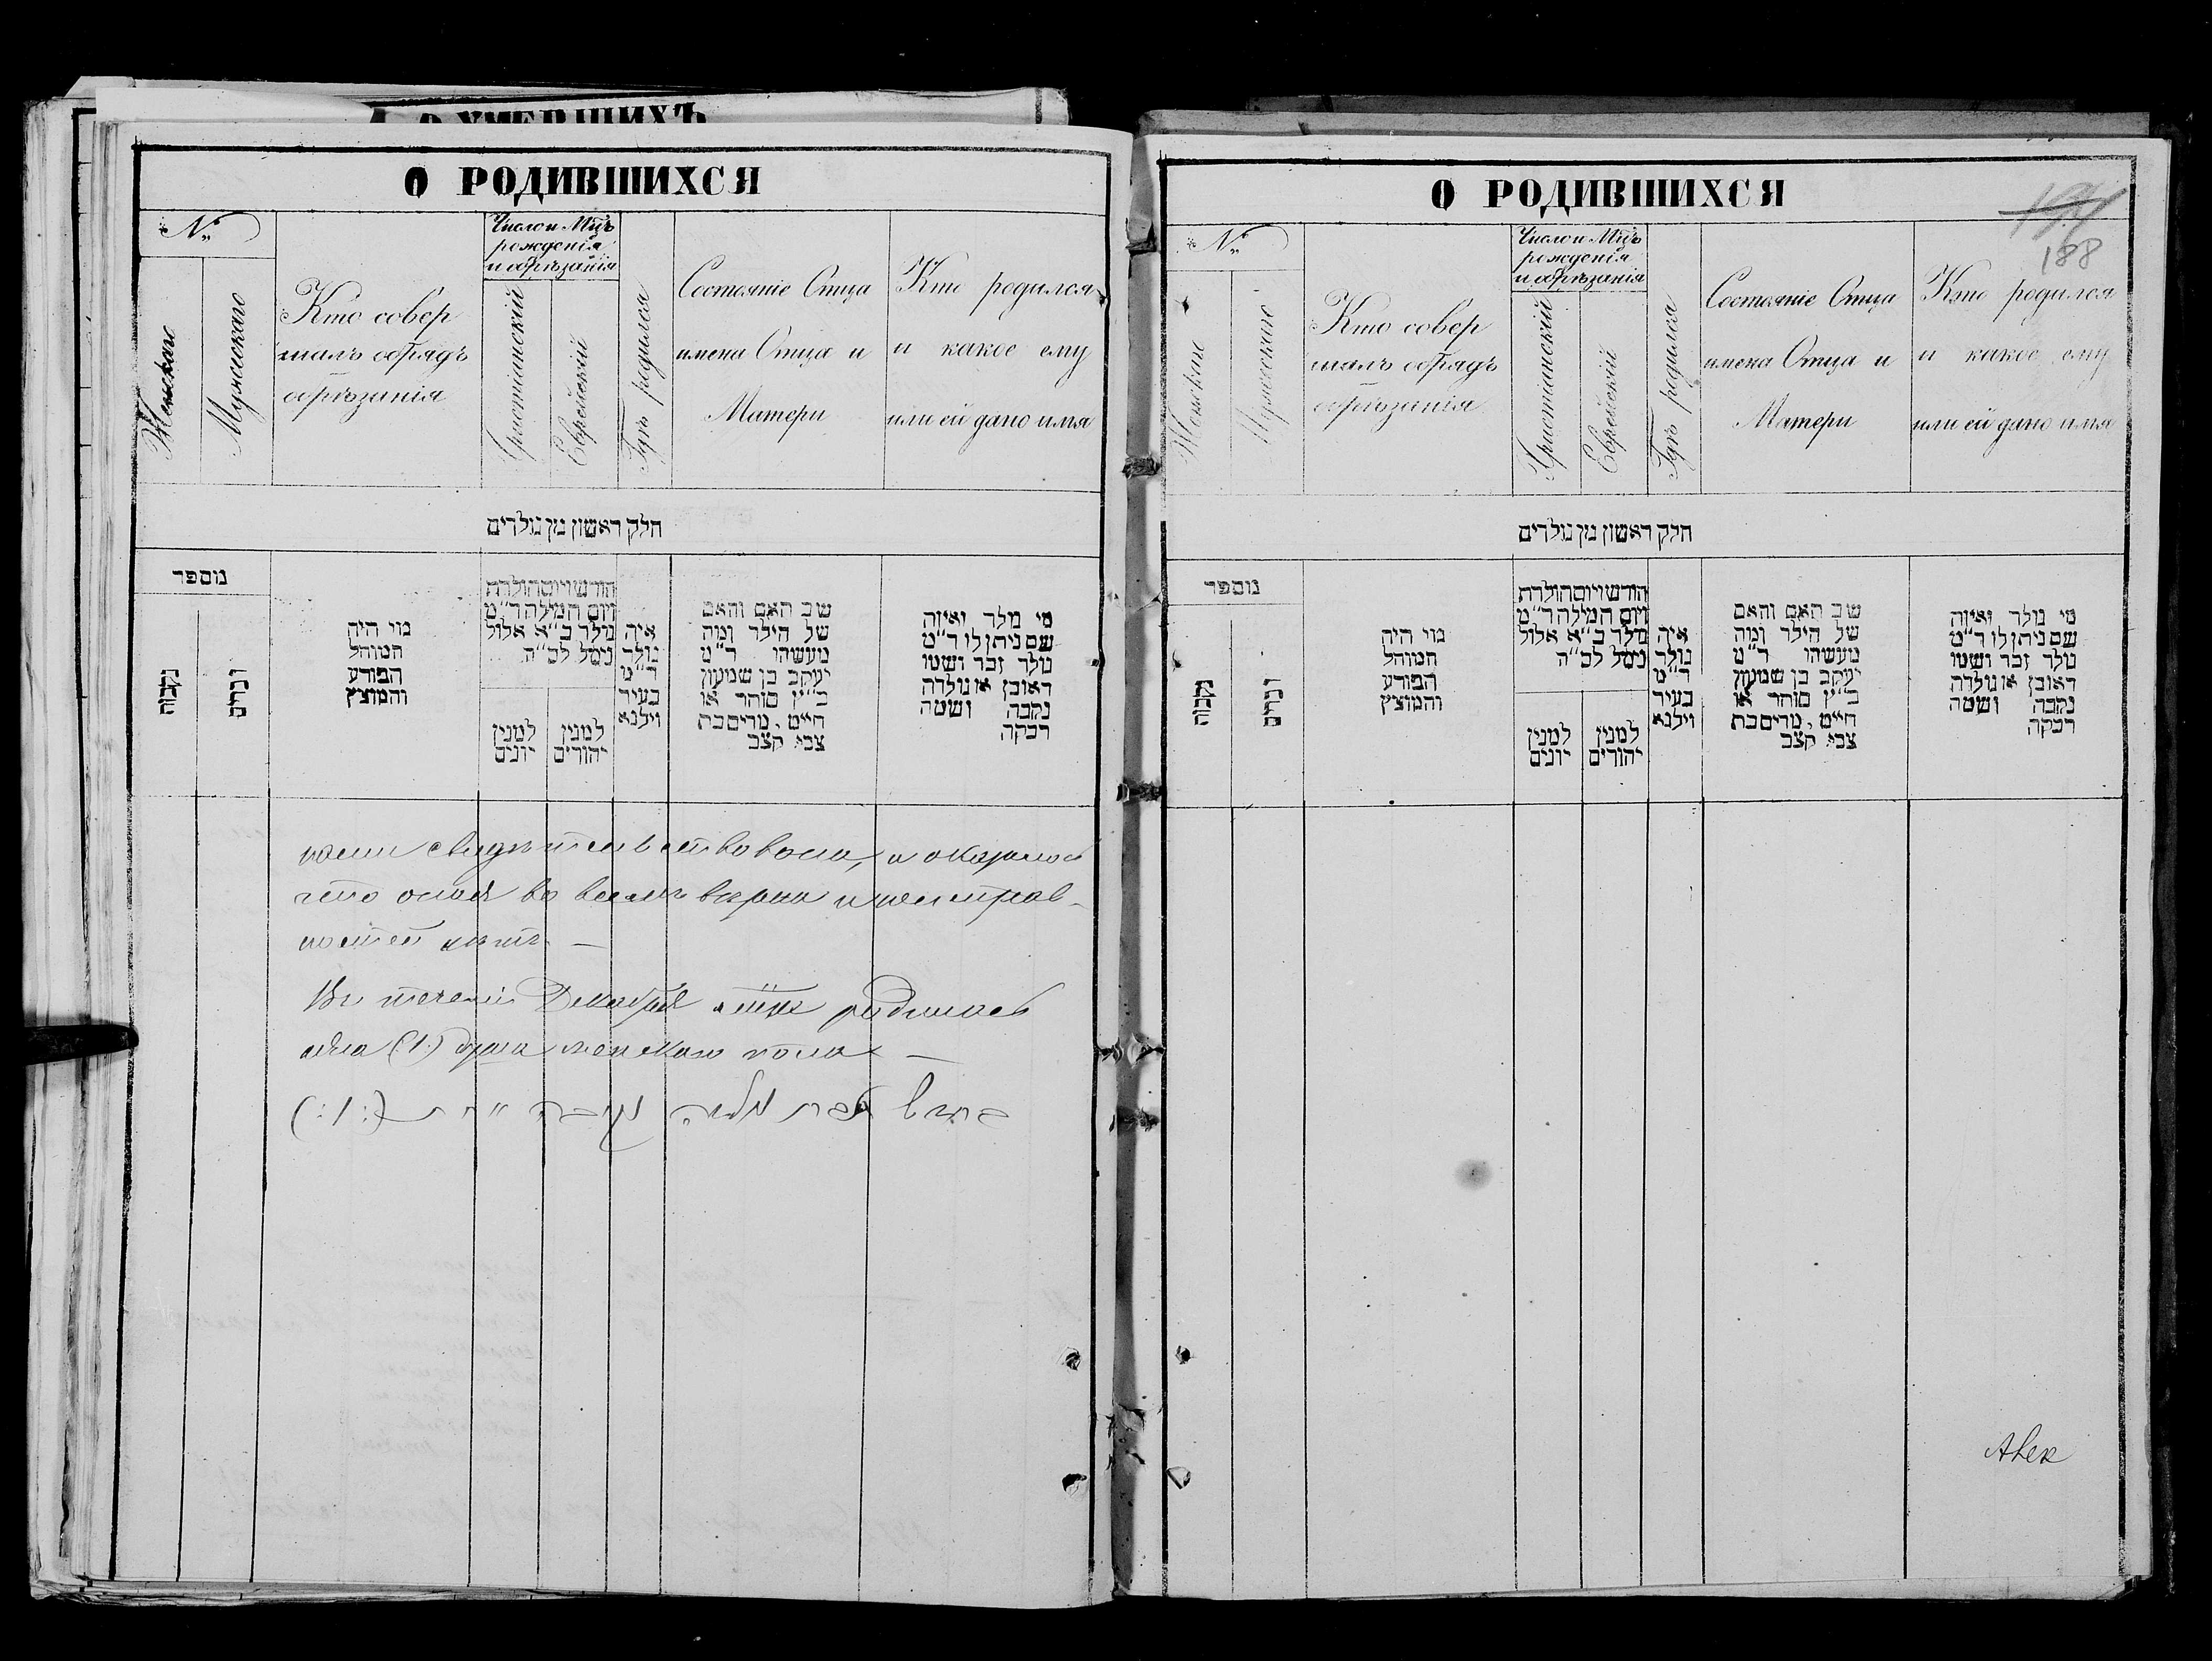 О РОДИВШИХСЯ
№
Женскаго
Мужескаго
Кто совер
шалъ обрядъ
обрѣзанія
Число и Мцъ
рожденія
и обрѣзанія
Христіанскій
Еврейскій
Гдѣ родился
Состояніе Отца
имена Отца и
Матери
Кто родился
и какое ему
или ей дано имя
חלק ראשון מן נולדים
מספר
נקבות
זכרים
מי היה
המוהל
הפורע
והמוצץ
חודש ויום הולדת
ויום המילה ד״מ
נולד ב״א אלול
נימל לכ״ה
למנין
יונים
למנין
יהודים
איה
נולד
ד״מ
בעיר
וילנא
שב האם והאם
של הילד ומה
מעשהו ד״מ
יעקב בן שמעון
כ״ץ סוחר או
חייט, מרים בת
צבי קצב
מי נולד ואיזה
שם ניתן לו ד״מ
נולד זכר ושמו
ראובן או נולדה
נקבה ושמה
רבקה
свидѣтельствована, и оказалось
что оная во всемъ вѣрна и неисправ-
ностей нѣтъ. —
Въ теченіи Декабря родилась
одна (1) душа женскаго пола —
(:1:)
О РОДИВШИХСЯ
194
188
№
Женскаго
Мужескаго
Кто совер
шалъ обрядъ
обрѣзанія
Число и Мцъ
рожденія
и обрѣзанія
Христіанскій
Еврейскій
Гдѣ родился
Состояніе Отца
имена Отца и
Матери
Кто родился
и какое ему
или ей дано имя
חלק ראשון מן נולדים
מספר
נקבות
זכרים
מי היה
המוהל
הפורע
והמוצץ
חודש ויום הולדת
ויום המילה ד״מ
נולד ב״א אלול
נימל לכ״ה
למנין
יונים
למנין
יהודים
איה
נולד
ד״מ
בעיר
וילנא
שב האם והאם
של הילד ומה
מעשהו ד״מ
יעקב בן שמעון
כ״ץ סוחר או
חייט, מרים בת
צבי קצב
מי נולד ואיזה
שם ניתן לו ד״מ
נולד זכר ושמו
ראובן או נולדה
נקבה ושמה
רבקה